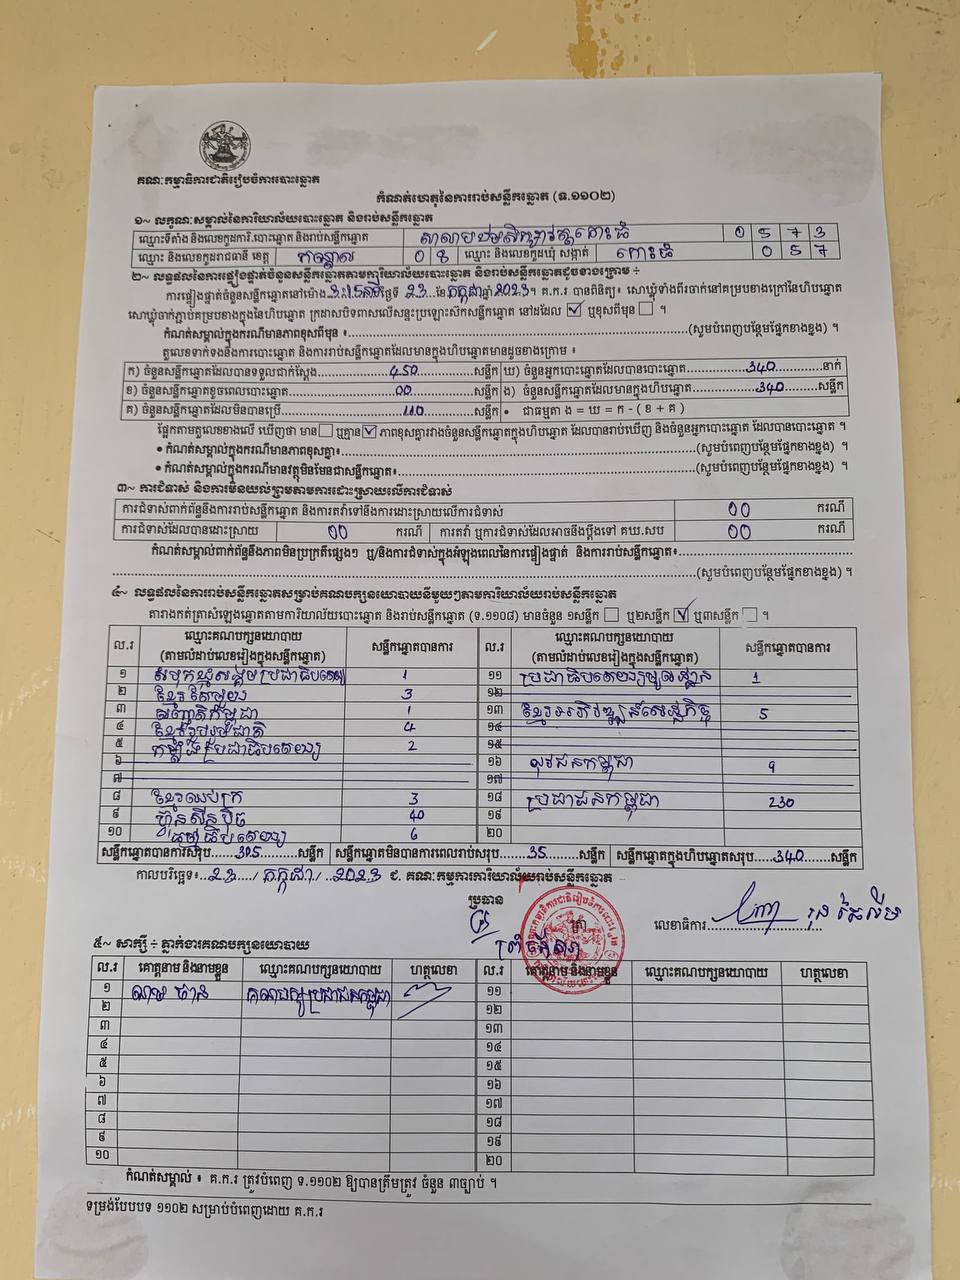 គណៈកម្មាធិការជាតិរៀបចំការបោះឆ្នោត
កំណត់ហេតុនៃការរាប់សន្លឹកឆ្នោត (ទ.១១០២)
១~ លក្ខណៈសម្គាល់នៃការិយាល័យបោះឆ្នោត និងរាប់សន្លឹកឆ្នោត
ឈ្មោះទីតាំង និងលេខកូដការិ.បោះឆ្នោត និងរាប់សន្លឹកឆ្នោត 0 5 7 3
ឈ្មោះ និងលេខកូដរាជធានី ខេត្ត កណ្តាល 0 8 ឈ្មោះ និងលេខកូដឃុំ សង្កាត់ កោះធំ 0 5 7
២~ លទ្ធផលនៃការផ្ទៀងផ្ទាត់ចំនួនសន្លឹកឆ្នោតតាមការិយាល័យបោះឆ្នោត និងរាប់សន្លឹកឆ្នោតដូចខាងក្រោម ÷
ការផ្ទៀងផ្ទាត់ចំនួនសន្លឹកឆ្នោតនៅម៉ោង 3:15 ថ្ងៃទី 23 ខែ កក្កដា ឆ្នាំ 2023។ គ.ក.រ បានពិនិត្យ៖ សោឃ្លុំទាំងពីរចាក់នៅគម្របខាងក្រៅនៃហិបឆ្នោត
សោឃ្លុំចាក់ភ្ជាប់គម្របខាងក្នុងនៃហិបឆ្នោត ក្រដាសបិទពាសលើសន្ទះប្រឡោះសិកសន្លឹកឆ្នោត នៅដដែល ☑ ឬខុសពីមុន ☐ ។
កំណត់សម្គាល់ក្នុងករណីមានភាពខុសពីមុន ៖ (សូមបំពេញបន្ថែមផ្នែកខាងខ្នង) ។
តួលេខទាក់ទងនឹងការបោះឆ្នោត និងការរាប់សន្លឹកឆ្នោតដែលមានក្នុងហិបឆ្នោតមានដូចខាងក្រោម ៖
ក) ចំនួនសន្លឹកឆ្នោតដែលបានទទួលជាក់ស្តែង 450 សន្លឹក ឃ) ចំនួនអ្នកបោះឆ្នោតដែលបានបោះឆ្នោត 340 នាក់
ខ) ចំនួនសន្លឹកឆ្នោតខូចពេលបោះឆ្នោត 00 សន្លឹក ង) ចំនួនសន្លឹកឆ្នោតដែលមានក្នុងហិបឆ្នោត 340 សន្លឹក
គ) ចំនួនសន្លឹកឆ្នោតដែលមិនបានប្រើ 110 សន្លឹក • ជាធម្មតា ង = ឃ = ក - ( ខ + គ )
ផ្អែកតាមតួលេខខាងលើ ឃើញថា មាន ☐ ឬគ្មាន ☑ ភាពខុសគ្នារវាងចំនួនសន្លឹកឆ្នោតក្នុងហិបឆ្នោត ដែលបានរាប់ឃើញ និងចំនួនអ្នកបោះឆ្នោត ដែលបានបោះឆ្នោត ។
• កំណត់សម្គាល់ក្នុងករណីមានភាពខុសគ្នា៖ (សូមបំពេញបន្ថែមផ្នែកខាងខ្នង) ។
• កំណត់សម្គាល់ក្នុងករណីមានវត្ថុមិនមែនជាសន្លឹកឆ្នោត៖ (សូមបំពេញបន្ថែមផ្នែកខាងខ្នង) ។
៣~ ការជំទាស់ និងការមិនយល់ព្រមតាមការដោះស្រាយលើការជំទាស់
ការជំទាស់ពាក់ព័ន្ធនឹងការរាប់សន្លឹកឆ្នោត និងការតវ៉ាទៅនឹងការដោះស្រាយលើការជំទាស់ 00 ករណី
ការជំទាស់ដែលបានដោះស្រាយ 00 ករណី ការតវ៉ា ឬការជំទាស់ដែលអាចនឹងប្តឹងទៅ គឃ.សប 00 ករណី
កំណត់សម្គាល់ពាក់ព័ន្ធនឹងភាពមិនប្រក្រតីផ្សេងៗ ឬ/និងការជំទាស់ក្នុងអំឡុងពេលនៃការផ្ទៀងផ្ទាត់ និងការរាប់សន្លឹកឆ្នោត៖
(សូមបំពេញបន្ថែមផ្នែកខាងខ្នង) ។
៤~ លទ្ធផលនៃការរាប់សន្លឹកឆ្នោតសម្រាប់គណបក្សនយោបាយនីមួយៗតាមការិយាល័យរាប់សន្លឹកឆ្នោត
តារាងកត់ត្រាសំឡេងឆ្នោតតាមការិយាល័យបោះឆ្នោត និងរាប់សន្លឹកឆ្នោត (ទ.១១០៨) មានចំនួន ១សន្លឹក ☐ ឬ២សន្លឹក ☑ ឬ៣សន្លឹក ☐ ។
ល.រ ឈ្មោះគណបក្សនយោបាយ (តាមលំដាប់លេខរៀងក្នុងសន្លឹកឆ្នោត) សន្លឹកឆ្នោតបានការ ល.រ ឈ្មោះគណបក្សនយោបាយ (តាមលំដាប់លេខរៀងក្នុងសន្លឹកឆ្នោត) សន្លឹកឆ្នោតបានការ
១ សំបុកឃ្មុំសង្គមប្រជាធិបតេយ្យ 1 ១១ ប្រជាធិបតេយ្យមូលដ្ឋាន 1
២ ខ្មែរតែមួយ 3 ១២
៣ សញ្ជាតិកម្ពុជា 1 ១៣ ខ្មែរអភិវឌ្ឍន៍សេដ្ឋកិច្ច 5
៤ ខ្មែររួបរួមជាតិ 4 ១៤
៥ កម្លាំងប្រជាធិបតេយ្យ 2 ១៥
៦ ១៦ យុវជនកម្ពុជា 9
៧ ១៧
៨ ខ្មែរឈប់ក្រ 3 ១៨ ប្រជាជនកម្ពុជា 230
៩ ហ៊្វុនស៊ិនប៉ិច 40 ១៩
១០ ធម្មាធិបតេយ្យ 6 ២០
សន្លឹកឆ្នោតបានការសរុប 305 សន្លឹក សន្លឹកឆ្នោតមិនបានការពេលរាប់សរុប 35 សន្លឹក សន្លឹកឆ្នោតក្នុងហិបឆ្នោតសរុប 340 សន្លឹក
កាលបរិច្ឆេទ៖ 23 / កក្កដា / 2023 ជ. គណៈកម្មការការិយាល័យរាប់សន្លឹកឆ្នោត
ប្រធាន ត្រា លេខាធិការ
៥~ សាក្សី ÷ ភ្នាក់ងារគណបក្សនយោបាយ
ល.រ គោត្តនាម និងនាមខ្លួន ឈ្មោះគណបក្សនយោបាយ ហត្ថលេខា ល.រ គោត្តនាម និងនាមខ្លួន ឈ្មោះគណបក្សនយោបាយ ហត្ថលេខា
១ គណបក្សប្រជាជនកម្ពុជា ១១
២ ១២
៣ ១៣
៤ ១៤
៥ ១៥
៦ ១៦
៧ ១៧
៨ ១៨
៩ ១៩
១០ ២០
កំណត់សម្គាល់ ៖ គ.ក.រ ត្រូវបំពេញ ទ.១១០២ ឱ្យបានត្រឹមត្រូវ ចំនួន ៣ច្បាប់ ។
ទម្រង់បែបបទ ១១០២ សម្រាប់បំពេញដោយ គ.ក.រ